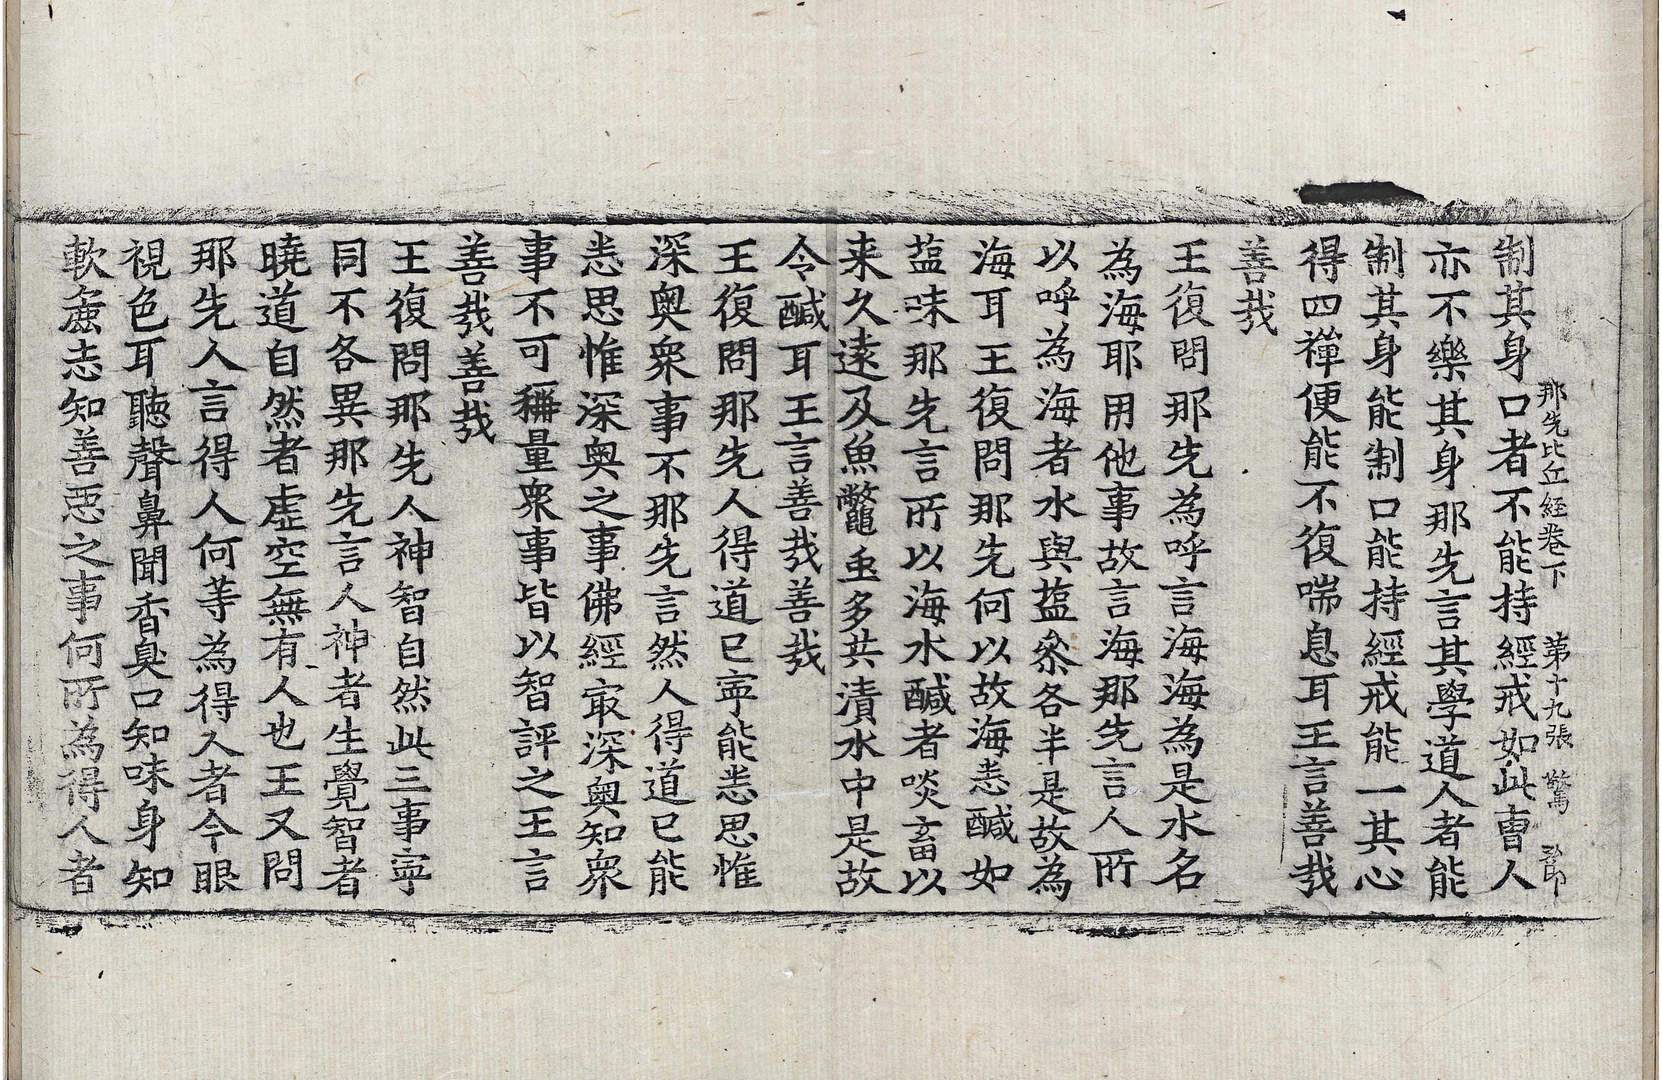 那先比丘経卷下　第十九張　驚
制其身口者不能持經戒如此曺人
亦不樂其身那先言其學道人者能
制其身能制口能持經戒能一其心
得四禪便能不復喘息耳王言善㢤
善㢤
王復問那先為呼言海海為是水名
為海耶用他事故言海那先言人所
以呼為海者水與塩叅各半是故為
海耳王復問那先何以故海悉醎如
塩味那先言所以海水醎者啖畜以
来久遠及魚鼈䖝多共漬水中是故
令醎耳王言善㢤善㢤
王復問那先人得道已寜能悉思惟
深奥衆事不那先言然人得道已能
悉思惟深奥之事佛經㝡深奥知衆
事不可稱量衆事皆以智評之王言
善㢤善㢤
王復問那先人神智自然此三事寜
同不各異那先言人神者生覺智者
曉道自然者虛空無有人也王又問
那先人言得人何等為得人者今眼
視色耳聽聲鼻聞香臭口知味身知
軟麁志知善惡之事何所為得人者